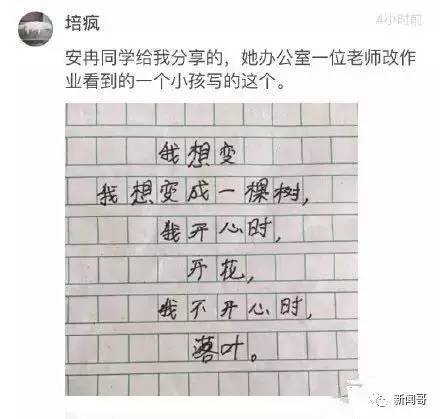 培疯
4小时前
安冉同学给我分享的，她办公室一位老师改作
业看到的一个小孩写的这个。
我想变
我想变成一棵树，
我开心时，
开花，
我不开心时，
落叶。
新闻哥